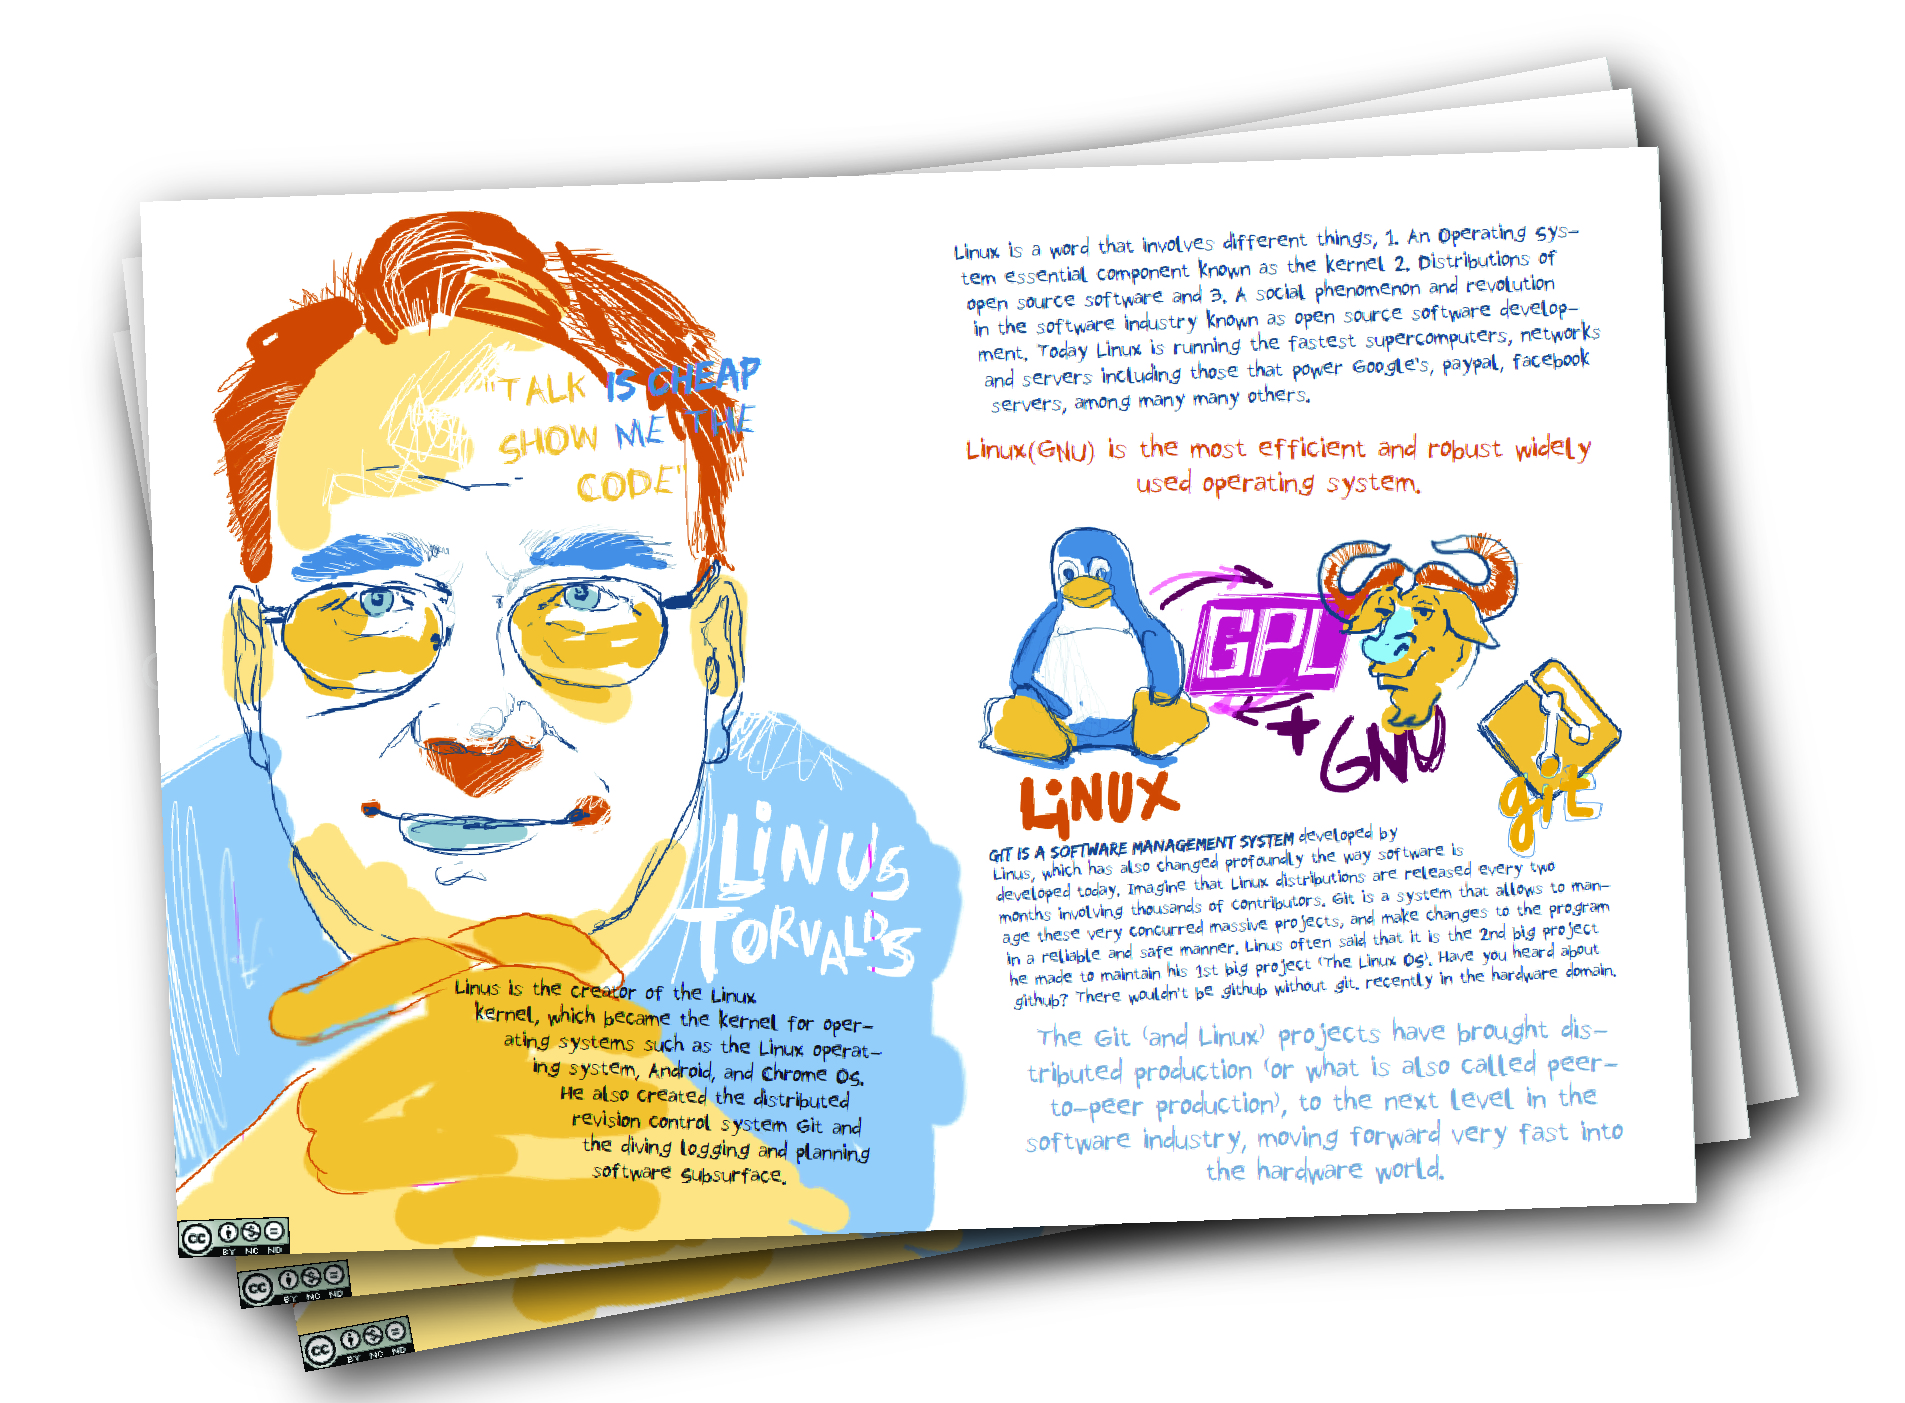 "TALK IS CHEAP
SHOW ME THE
CODE"
LINUS
TORVALDS
Linus is the creator of the Linux
kernel, which became the kernel for oper-
ating systems such as the Linux operat-
ing system, Android, and Chrome OS.
He also created the distributed
revision control system Git and
the diving logging and planning
software Subsurface.
cc
BY NC ND
cc
BY NC ND
cc
BY NC ND
Linux is a word that involves different things, 1. An Operating Sys-
tem essential component known as the kernel 2. Distributions of
open source software and 3. A social phenomenon and revolution
in the software industry known as open source software develop-
ment. Today Linux is running the fastest supercomputers, networks
and servers including those that power Google's, paypal, facebook
servers, among many many others.
Linux(GNU) is the most efficient and robust widely
used operating system.
GPL
+ GNU
LiNUX
git
GIT IS A SOFTWARE MANAGEMENT SYSTEM developed by
Linus, which has also changed profoundly the way software is
developed today. Imagine that Linux distributions are released every two
months involving thousands of contributors. Git is a system that allows to man-
age these very concurred massive projects, and make changes to the program
in a reliable and safe manner. Linus often said that it is the 2nd big project
he made to maintain his 1st big project (The Linux OS). Have you heard about
github? There wouldn't be github without git. recently in the hardware domain.
The Git (and Linux) projects have brought dis-
tributed production (or what is also called peer-
to-peer production), to the next level in the
software industry, moving forward very fast into
the hardware world.